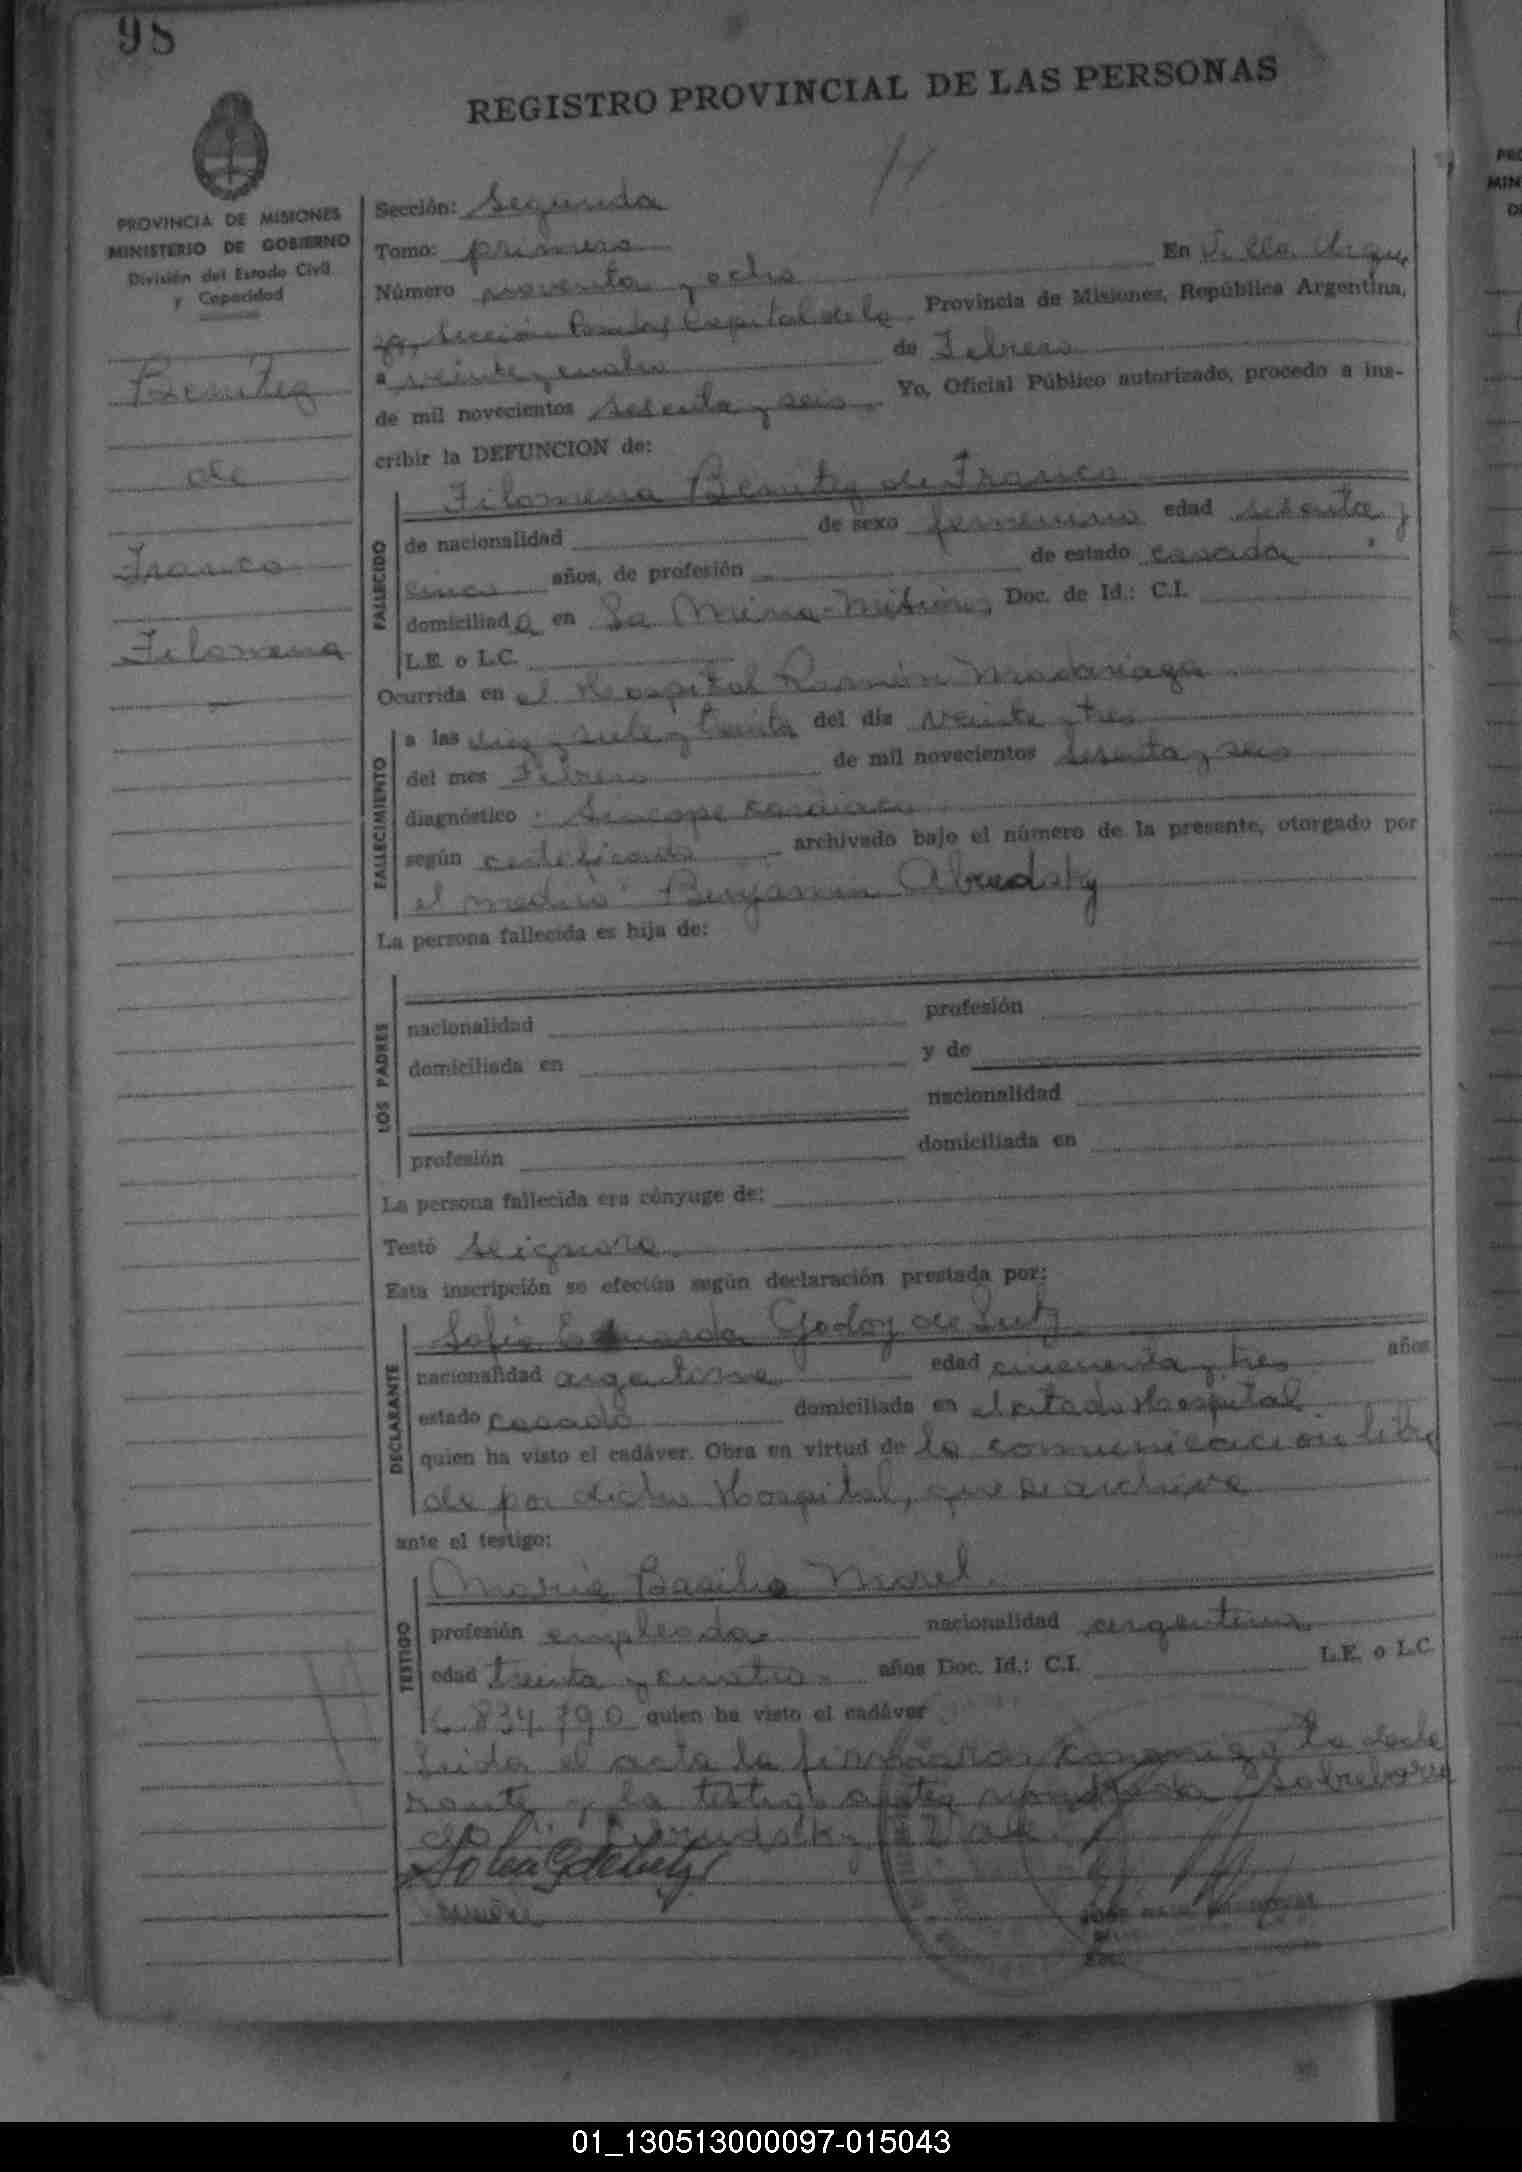 98
REGISTRO PROVINCIAL DE LAS PERSONAS
PROVINCIA DE MISIONES
MINISTERIO DE GOBIERNO
División del Estado Civil
y Capacidad
Benítez
de
Franco
Filomena
Sección: Segunda
Tomo: primero
Número noventa y ocho En Villa Urqui
za, Sección Posadas Capital de la Provincia de Misiones, República Argentina,
a veinte y cuatro de Febrero
de mil novecientos sesenta y seis. Yo, Oficial Público autorizado, procedo a ins-
cribir la DEFUNCION de:
FALLECIDO
Filomena Benitez de Franco
de nacionalidad de sexo femenino edad sesenta y
cinco años, de profesión de estado casada
domiciliada en La Mina-Misiones Doc. de Id.: C.I.
L.E. o L.C.
Ocurrida en el Hospital Ramón Madariaga
FALLECIMIENTO
a las diez y siete y treinta del día veinte y tres
del mes Febrero de mil novecientos sesenta y seis
diagnóstico: Sincope cardiaco
según certificado archivado bajo el número de la presente, otorgado por
el medico Benjamin Abrudsky
La persona fallecida es hija de:
LOS PADRES
nacionalidad profesión
domiciliada en y de
nacionalidad
profesión domiciliada en
La persona fallecida era cónyuge de:
Testó se ignora
Esta inscripción se efectúa según declaración prestada por:
DECLARANTE
Sofia Eduarda Godoy de Lutz
nacionalidad argentina edad cincuenta y tres años
estado casada domiciliada en el citado Hospital
quien ha visto el cadáver. Obra en virtud de la comunicacion libra
da por dicho Hospital, que se archiva
ante el testigo:
TESTIGO
Maria Basilia Morel.
profesión empleada. nacionalidad argentina
edad treinta y cuatro. años Doc. Id.: C.I. L.E. o L.C.
6.834.790 quien ha visto el cadáver
Leida el acta la firmaron conmigo la decla
rante y la testigo antes nombrada Sobreborra
do: Abrudsky Vale
01_130513000097-015043